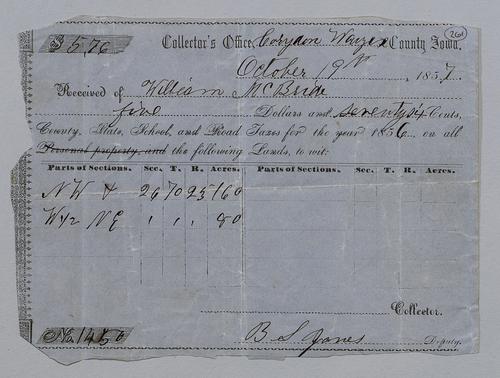 261
$5.76 Collector's Office, Corydon Wayne County Iowa.
October 19th, 1857.
Received of William McBride
five Dollars and seventy six Cents,
County, State, School, and Road Taxes for the year 1856 on all
Personal property, and the following Lands, to wit:
Parts of Sections. Sec. T. R. Acres. Parts of Sections. Sec. T. R. Acres.
NW 4 26 70 23 160
W 1/2 NE " " " 80
Collector.
No. 1450 B S Jones Deputy.